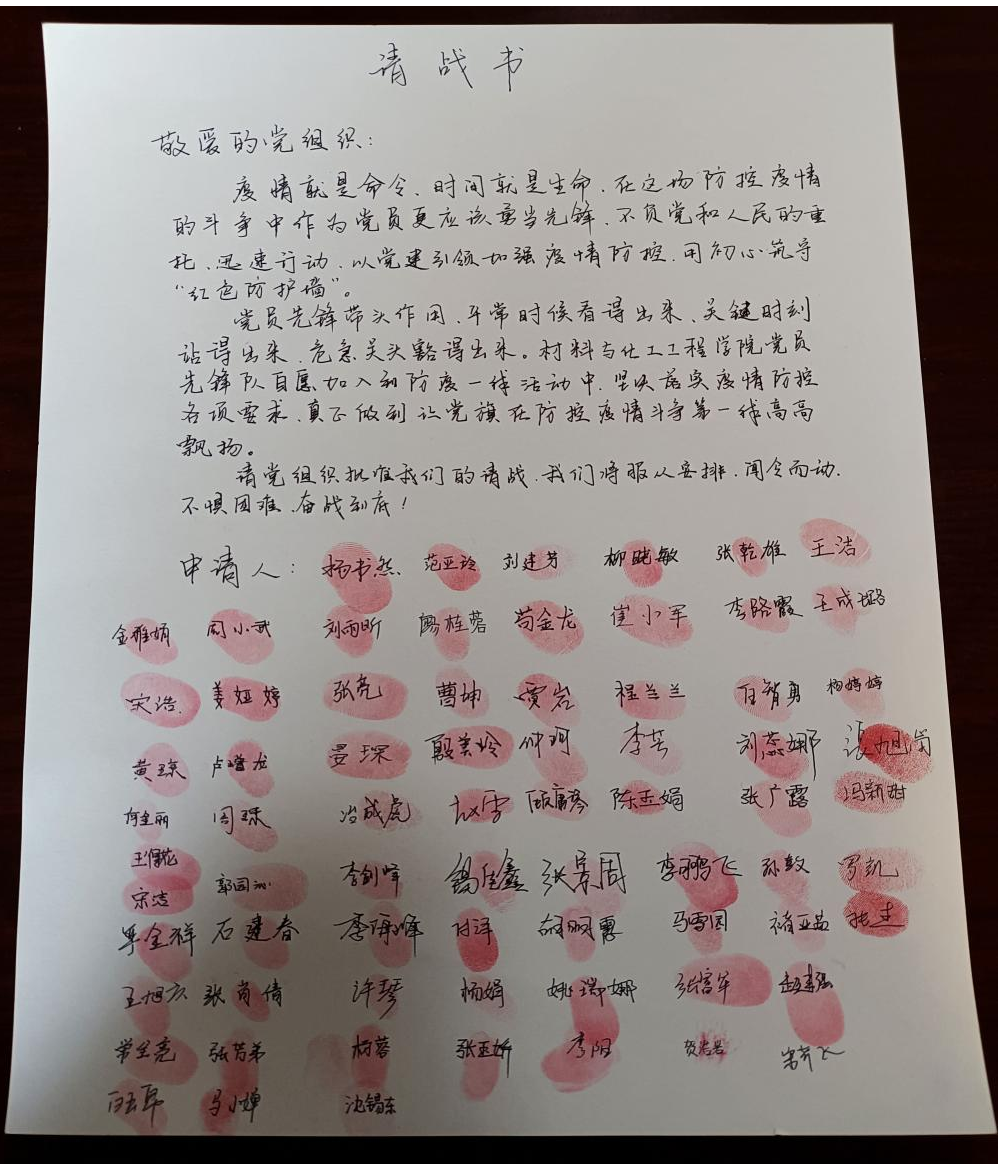 请战书
敬爱的党组织：
疫情就是命令、时间就是生命、在这场防控疫情
的斗争中作为党员更应该勇当先锋、不负党和人民的重
托、迅速行动、以党建引领加强疫情防控、用初心筑守
“红色防护墙”。
党员先锋带头作用、平常时候看得出来、关键时刻
站得出来、危急关头豁得出来。材料与化工工程学院党员
先锋队自愿加入到防疫一线活动中、坚决落实疫情防控
各项要求、真正做到让党旗在防控疫情斗争第一线高高
飘扬。
请党组织批准我们的请战、我们将服从安排、闻令而动、
不惧困难、奋战到底！
申请人： 杨书然 范亚玲 刘建芳 柳晓敏 张乾雄 王洁
金雅娟 周小武 刘雨昕 杨桂蓉 苟金龙 崔小军 李骆霞 王成璐
宋浩 姜娅婷 张亮 曹坤 贾岩 程兰兰 白智勇 杨婷婷
黄琼 晏琛 殷美玲 仲珂 李芸 刘蕊娜 张旭岗
何圭丽 周琛 冶成虎 赵雪 陈玉娟 张广露 冯新甜
宋洁 李剑峰 杨佳鑫 李鹏飞 孙敏 罗凯
石建春 李海峰 甘泽 胡明霞 马雪园 褚亚茹
张肖倩 许琴 杨娟 姚瑞娜 张富军
张芳弟 杨蓉 张亚娇 李阳
马小婵 沈锡东